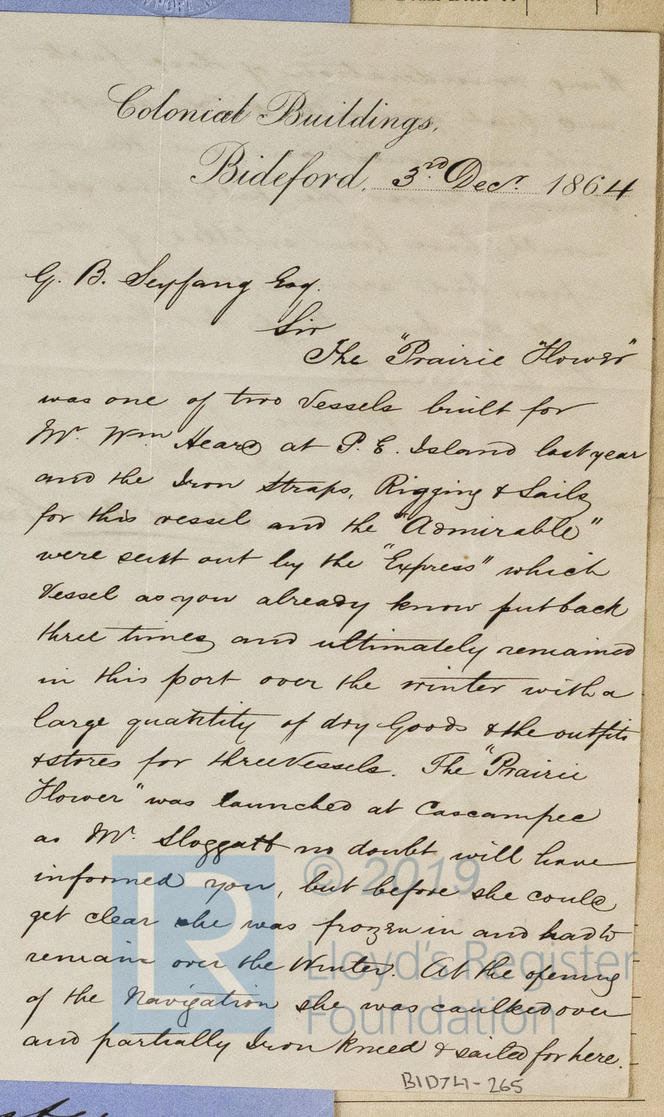 Colonial Buildings,
Bideford, 3rd Decr. 1864
G. B. Seyfang Esq.
Sir
The "Prairie Flower"
was one of two Vessels built for
Mr. Wm Heard at P. E. Island last year
and the Iron Straps, Rigging & Sails
for this vessel and the "Admirable"
were sent out by the "Express" which
Vessel as you already know put back
three times, and ultimately remained
in this port over the winter with a
large quantity of dry Goods & the outfits
& stores for three Vessels. The "Prairie
Flower" was launched at Cascumpec
as Mr. Sloggatt no doubt will have
informed you, but before she could
get clear she was frozen in and had to
remain over the Winter. At the opening
of the Navigation she was caulked over
and partially Iron Kneed & sailed for here.
BID74-265
© 2019
Lloyd's Register
Foundation
LR